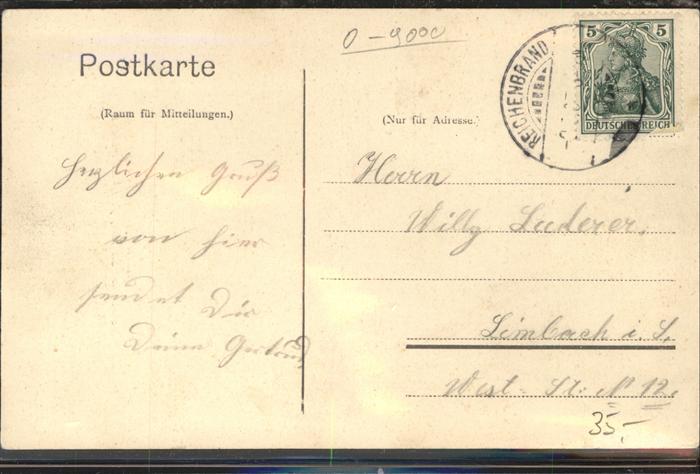 0-9000
Postkarte
(Raum für Mitteilungen.)
(Nur für Adresse.)
REICHENBRAND
5 5
DEUTSCHES REICH
Herzlichen Gruß
von hier
sendet Dir
Deine Gertrud
Herrn
Willy Luderer.
Limbach i. S.
West-Str. № 12.
35,-